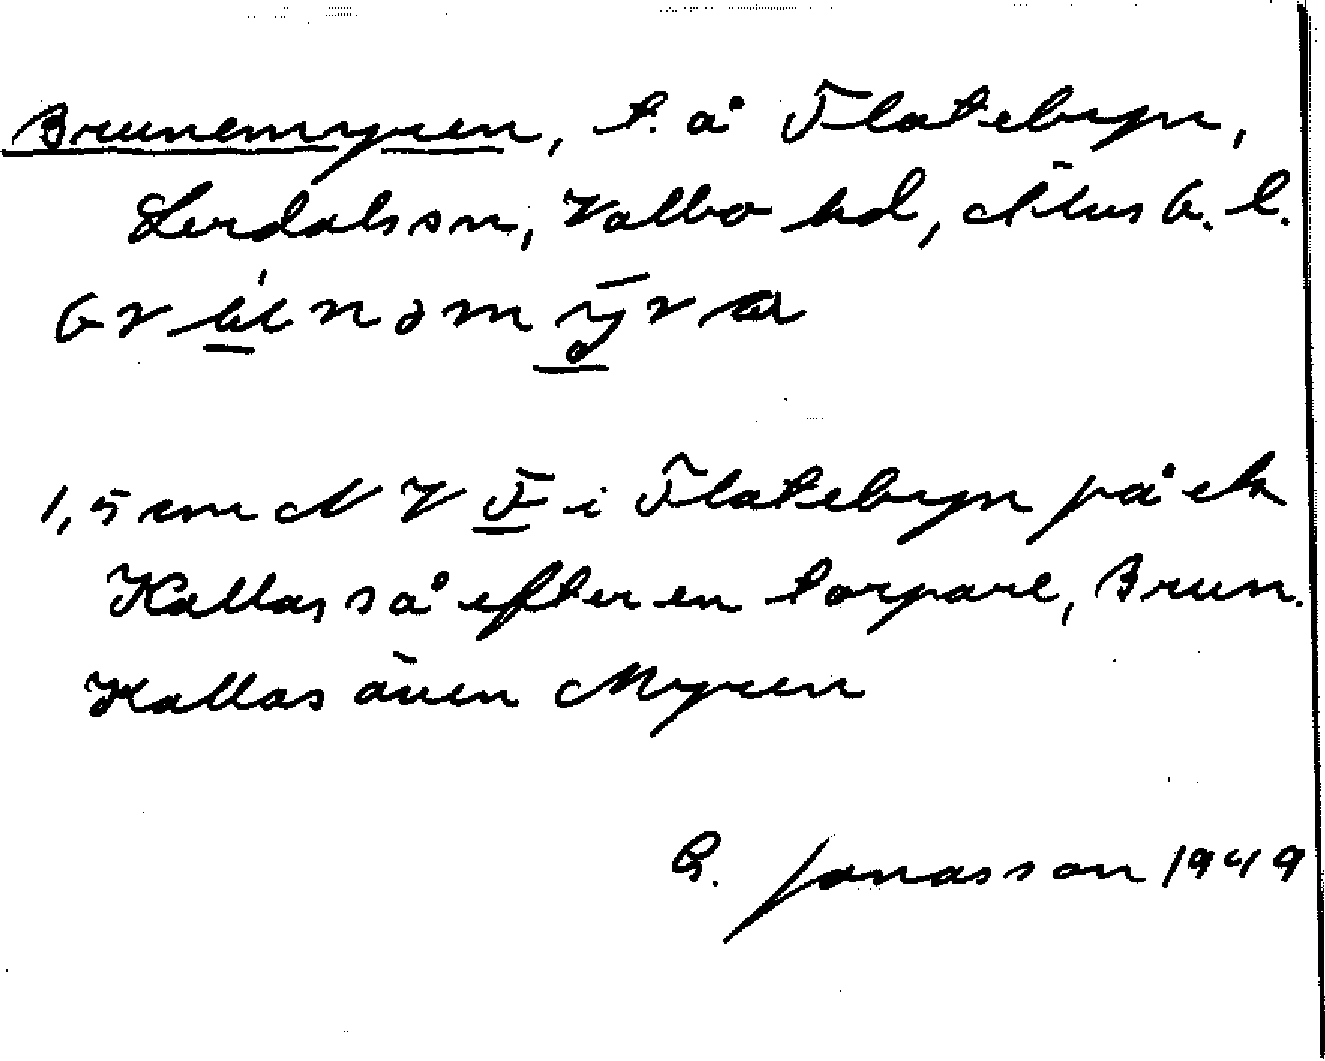 Brunemyren, t. å Flatebyn,
Lerdals sn, Valbo hd, Älvsb. l.
1,5 cm NV F i Flatebyn på ek
Kallas så efter en torpare, Brun.
Kallas även Myren
G. Jonasson 1949